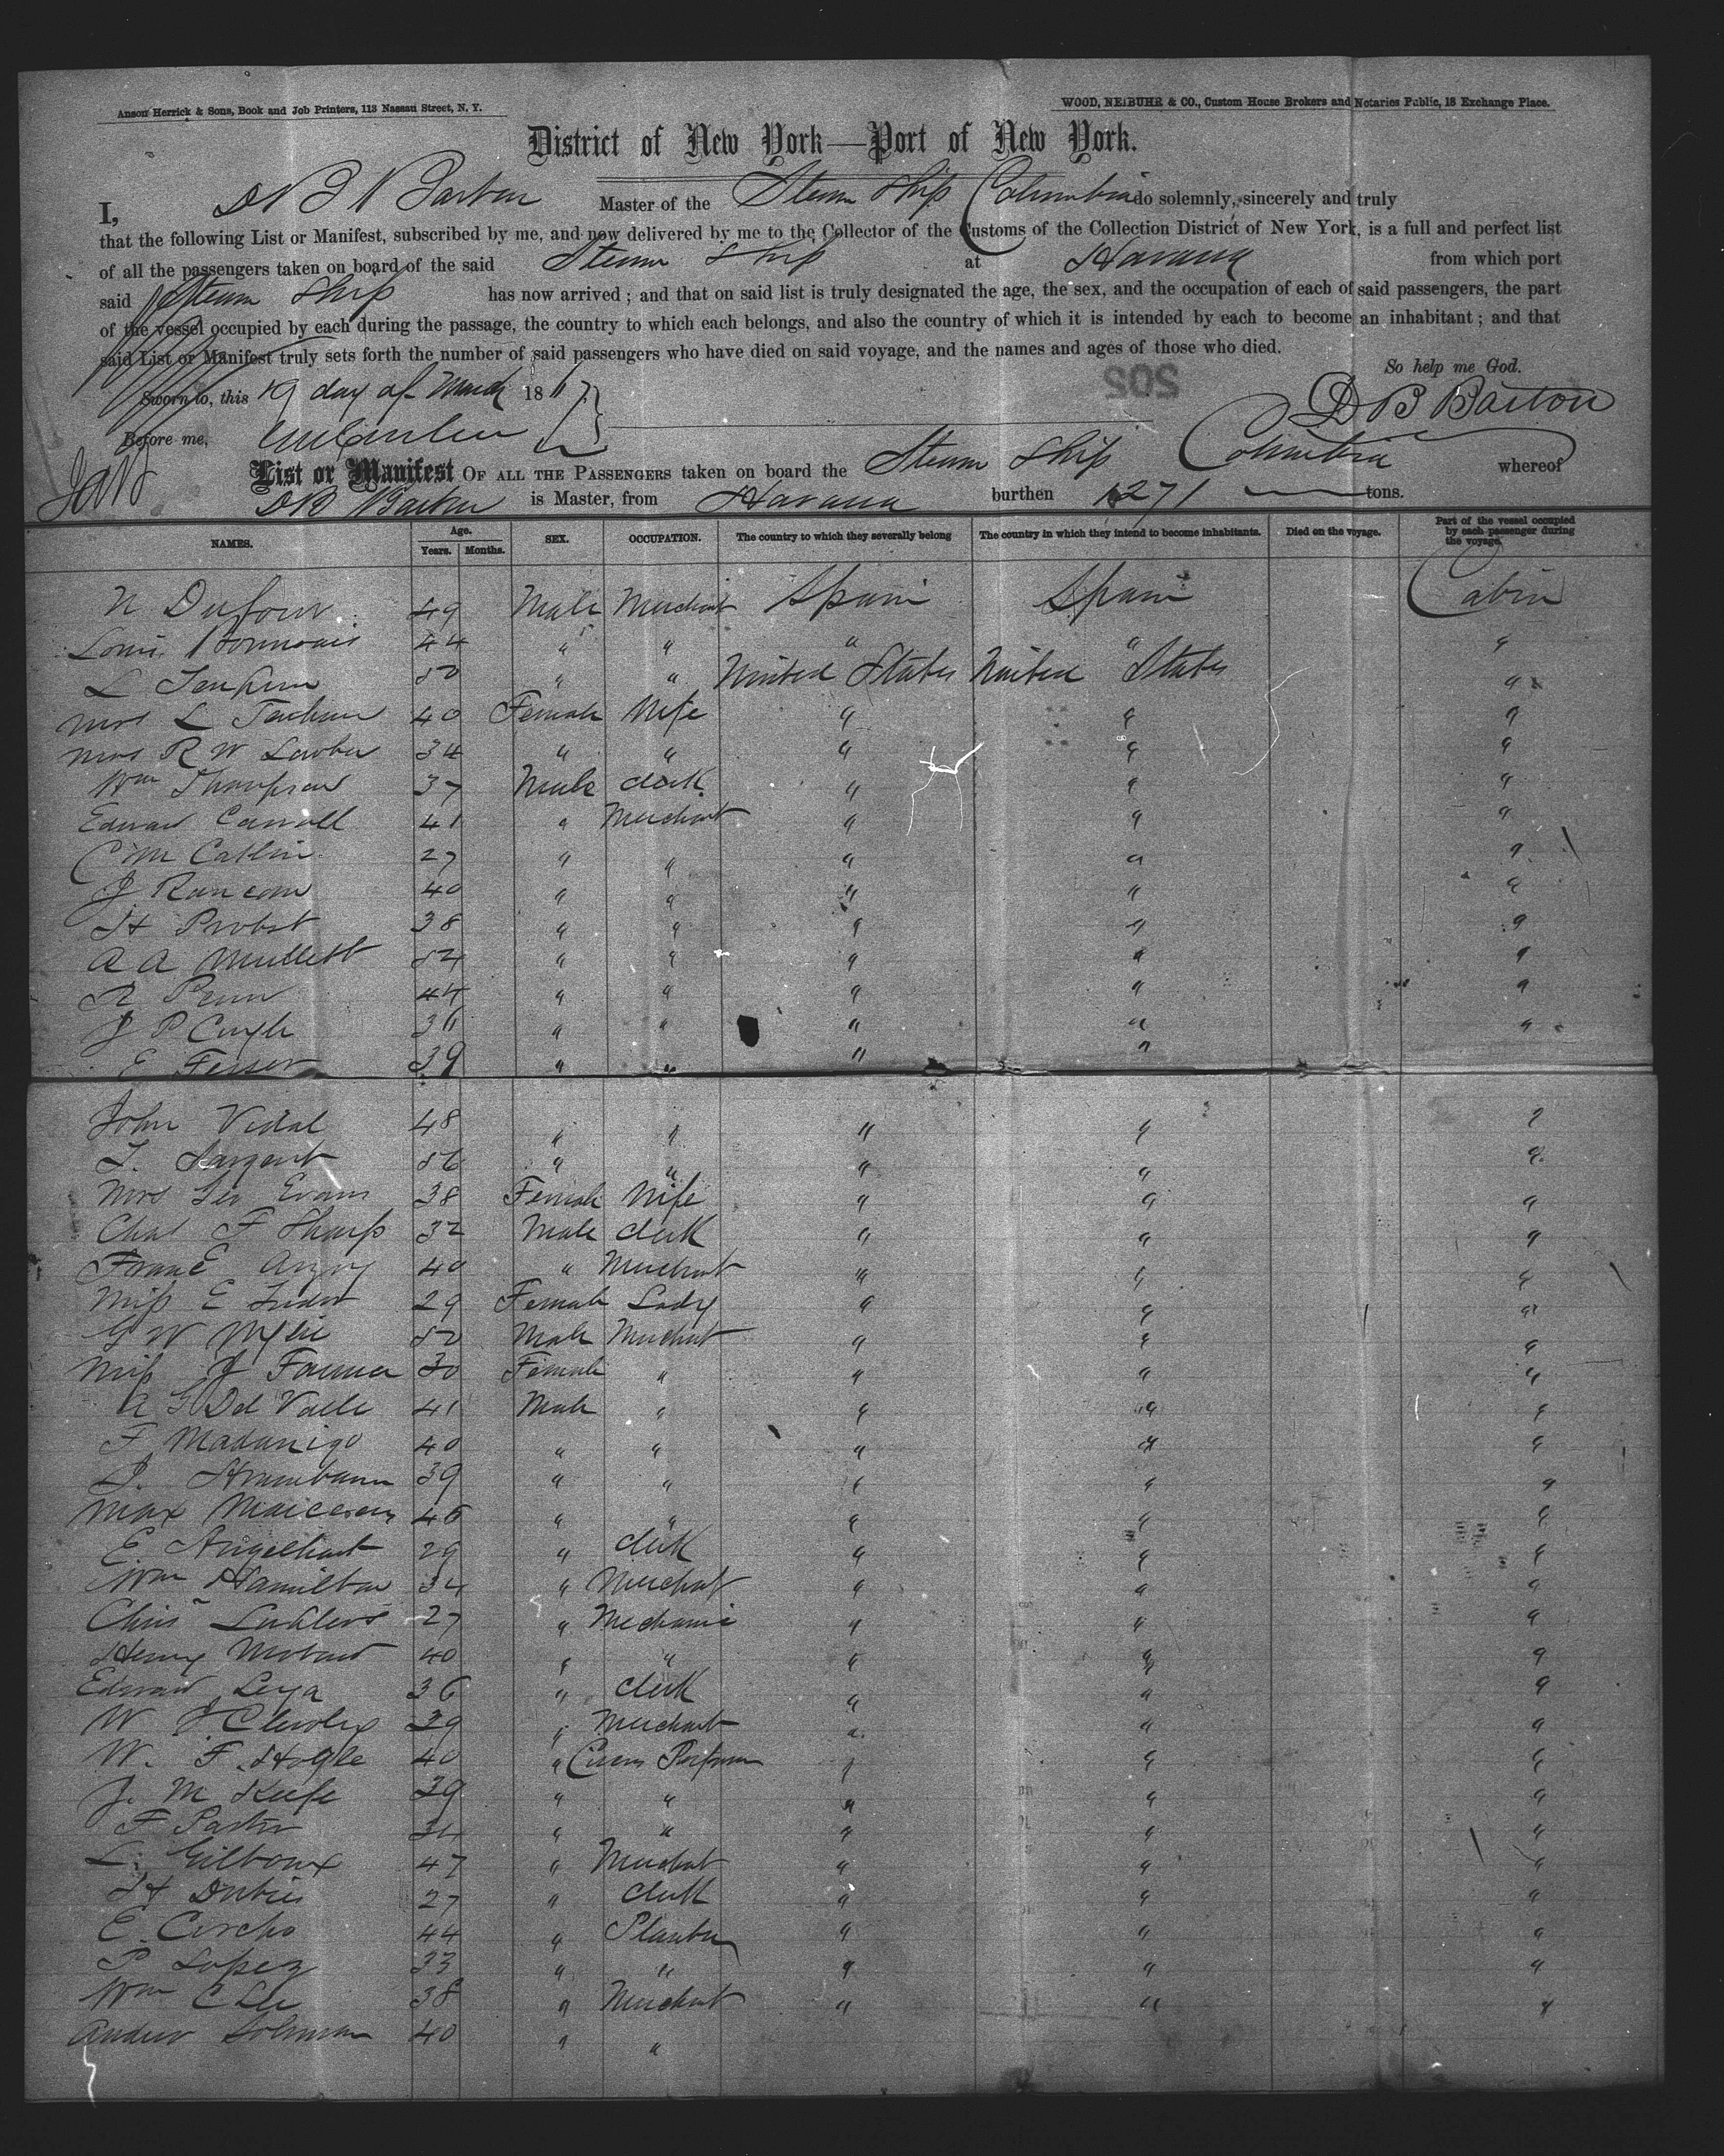 Anson Herrick & Sons, Book and Job Printers, 113 Nassau Street, N. Y.
WOOD, NEIBUHR & CO., Custom House Brokers and Notaries Public, 18 Exchange Place.
District of New York—Port of New York.
I, D B Barton Master of the Steam Ship Columbia do solemnly, sincerely and truly
that the following List or Manifest, subscribed by me, and now delivered by me to the Collector of the Customs of the Collection District of New York, is a full and perfect list
of all the passengers taken on board of the said Steam Ship at Havana from which port
said Steam Ship has now arrived ; and that on said list is truly designated the age, the sex, and the occupation of each of said passengers, the part
of the vessel occupied by each during the passage, the country to which each belongs, and also the country of which it is intended by each to become an inhabitant ; and that
said List or Manifest truly sets forth the number of said passengers who have died on said voyage, and the names and ages of those who died.
So help me God.
Sworn to, this 19 day of March 1867
D B Barton
Before me,
List or Manifest OF ALL THE PASSENGERS taken on board the Steam Ship Columbia whereof
D B Barton is Master, from Havana burthen 1271 tons.
NAMES. Age. Years. Months. SEX. OCCUPATION. The country to which they severally belong The country in which they intend to become inhabitants. Died on the voyage. Part of the vessel occupied by each passenger during the voyage.
N Dufour 49 Male Merchant Spain Spain Cabin
Louis 44 " " " " "
L 50 " " United States United States "
Mrs L 40 Female Wife " " "
Mrs R W 34 " " " " "
Wm Thompson 37 Male Clerk " " "
Edward Carroll 41 " Merchant " " "
C M Catlin 27 " " " " "
J Ransom 40 " " " " "
H Probst 38 " " " " "
A A Mullett 54 " " " " "
R Penn 44 " " " " "
J P 36 " " " " "
E Fesser 39 " " " "
John Vidal 48 " " " " "
T. Sargent 56 " " " " "
Mrs Geo Evans 38 Female Wife " " "
Chas F Sharp 32 Male Clerk " " "
40 " Merchant " " "
Miss E 29 Female Lady " " "
G W Wylie 50 Male Merchant " " "
Miss J 30 Female " " " "
A G Del Valle 41 Male " " " "
F Madurigo 40 " " " " "
39 " " " " "
Max 46 " " " " "
E Angelhart 29 " Clerk " " "
Wm Hamilton 34 " Merchant " " "
27 " Mechanic " " "
Henry 40 " " " " "
Edward Leya 36 " Clerk " " "
W J 39 " Merchant " " "
W. F. Hogle 40 " Circus Performer " " "
J. M Keefe 39 " " " " "
F Pastor 34 " " " " "
L. 47 " Merchant " " "
H 27 " Clerk " " "
E. 44 " Planter " " "
P Lopez 33 " " " " "
Wm C Lee 38 " Merchant " " "
Andrew 40 " "